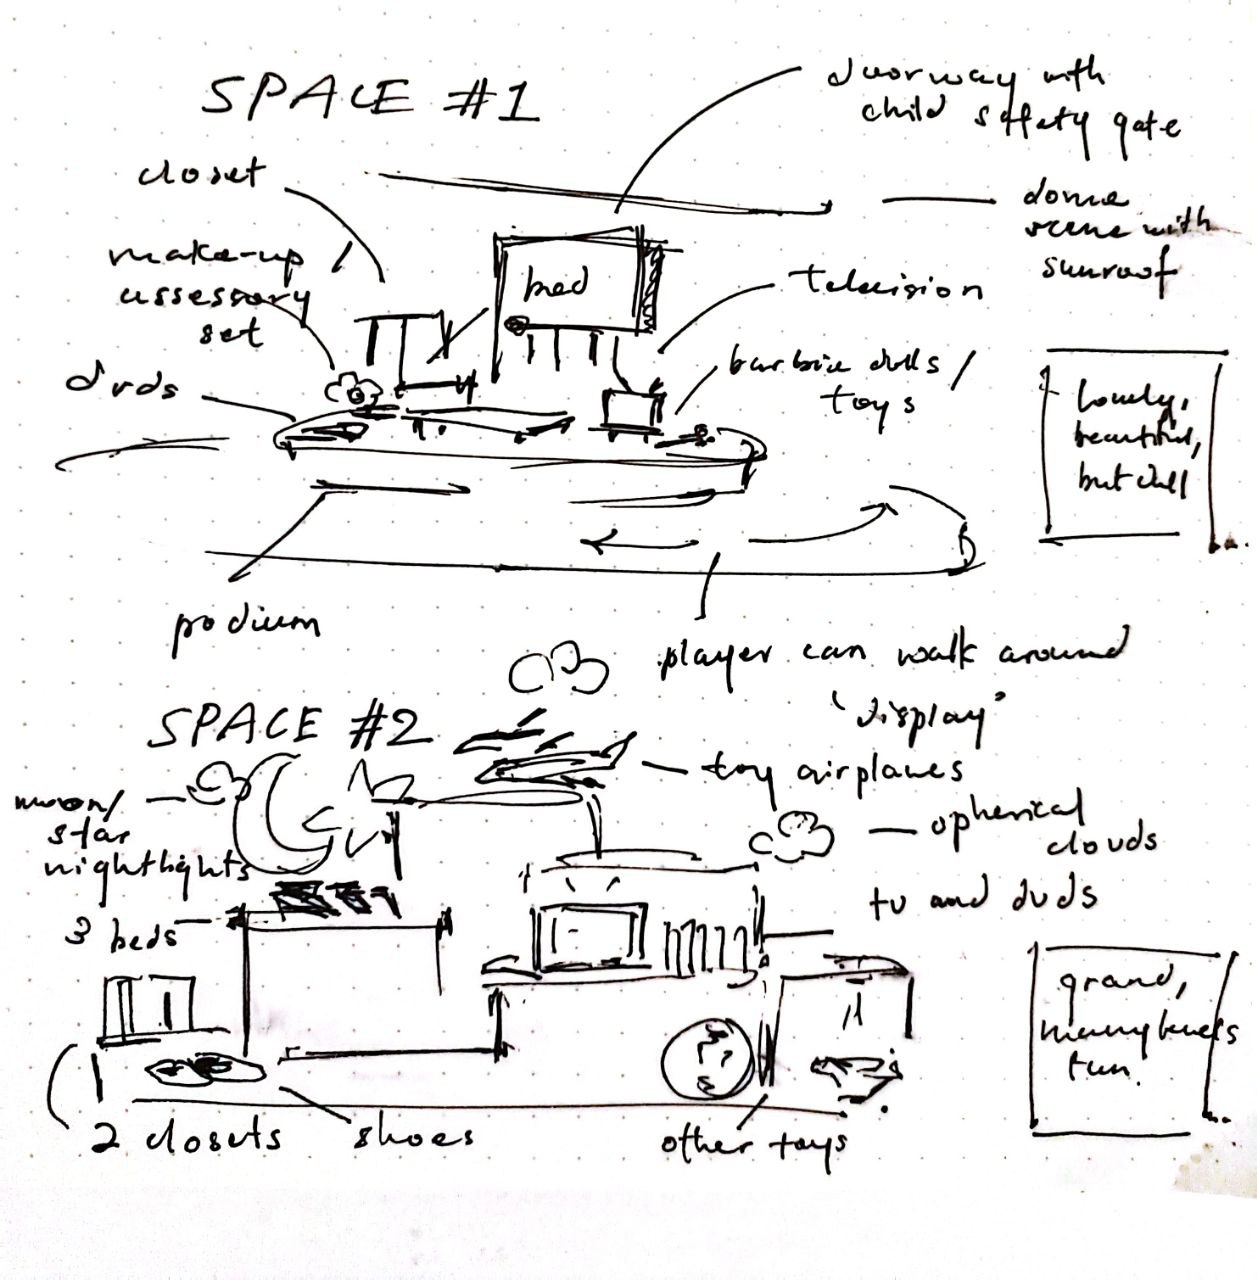 SPACE #1
doorway with
child saftety gate
closet
dome
scene with
sunroof
make-up
assessory
set
bed
television
dvds
barbie dolls /
toys
lonely,
beautiful,
but dull
podium
player can walk around
"display"
SPACE #2
toy airplanes
moon/
star
nightlights
spherical
clouds
3 beds
tv and dvds
grand,
many levels
fun.
2 closets
shoes
other toys